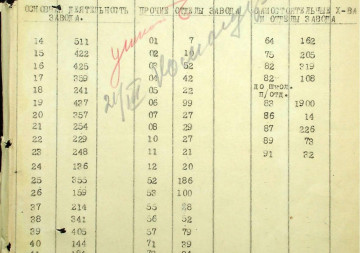 ОСНОВН. ДЕЯТЕЛЬНОСТЬ ПРОЧИЕ ОТДЕЛЫ ЗАВОДА САМОСТОЯТЕЛЬНЫЕ Х-ВА
ЗАВОДА. И ОТДЕЛЫ ЗАВОДА
14 511 01 7 64 162
15 422 02 10 75 205
16 425 03 52 82 319
17 359 04 42 82 108
18 241 05 22 ДО ШКОЛ.
П/ОТД.
19 427 06 99 83 1900
20 357 07 27 86 14
21 254 08 29 87 226
22 229 10 27 89 73
23 248 11 21 91 32
24 136 12 20
25 355 52 186
26 159 53 100
37 214 55 28
38 341 56 52
39 405 57 79
40 144 71 39